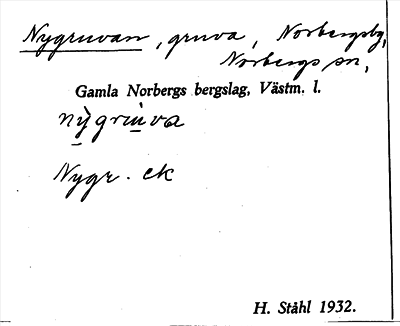 Nygruvan, gruva, Norbergsby,
Norbergs sn,
Gamla Norbergs bergslag, Västm. l.
nỳgrùva
Nygr. ek
H. Ståhl 1932.